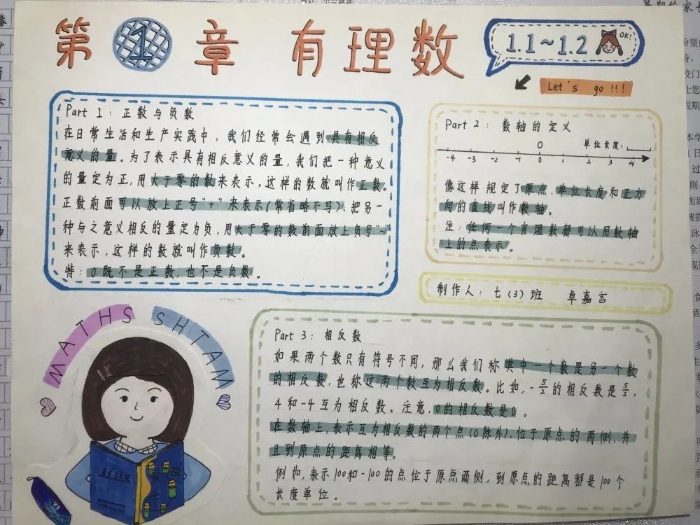 第1章 有理数
1.1~1.2
OK!
Let's go!!!
Part 1: 正数与负数
在日常生活和生产实践中，我们经常会遇到具有相反
意义的量。为了表示具有相反意义的量，我们把一种意义
的量定为正，用大于零的数来表示，这样的数就叫作正数。
正数前面可以放上正号"+"来表示(常省略不写)，把另一
种与之意义相反的量定为负，用大于零的数前面放上负号"-"
来表示，这样的数就叫作负数。
特：0既不是正数，也不是负数。
Part 2: 数轴的定义
0 单位长度：
-4 -3 -2 -1 1 2 3 4
像这样规定了原点、单位长度和正方
向的直线叫作数轴。
注：任何一个有理数都可以用数轴
上的点表示。
制作人：七(3)班 卓嘉言
MATHS SHTAM
Part 3: 相反数
如果两个数只有符号不同，那么我们称其中一个数是另一个数
的相反数，也称这两个数互为相反数。比如，-5/2的相反数是5/2，
4和-4互为相反数。注意，0的相反数是0。
在数轴上，表示互为相反数的两个点(0除外)，位于原点的两侧，并
且到原点的距离相等。
例如，表示100和-100的点位于原点两侧，到原点的距离都是100个
长度单位。